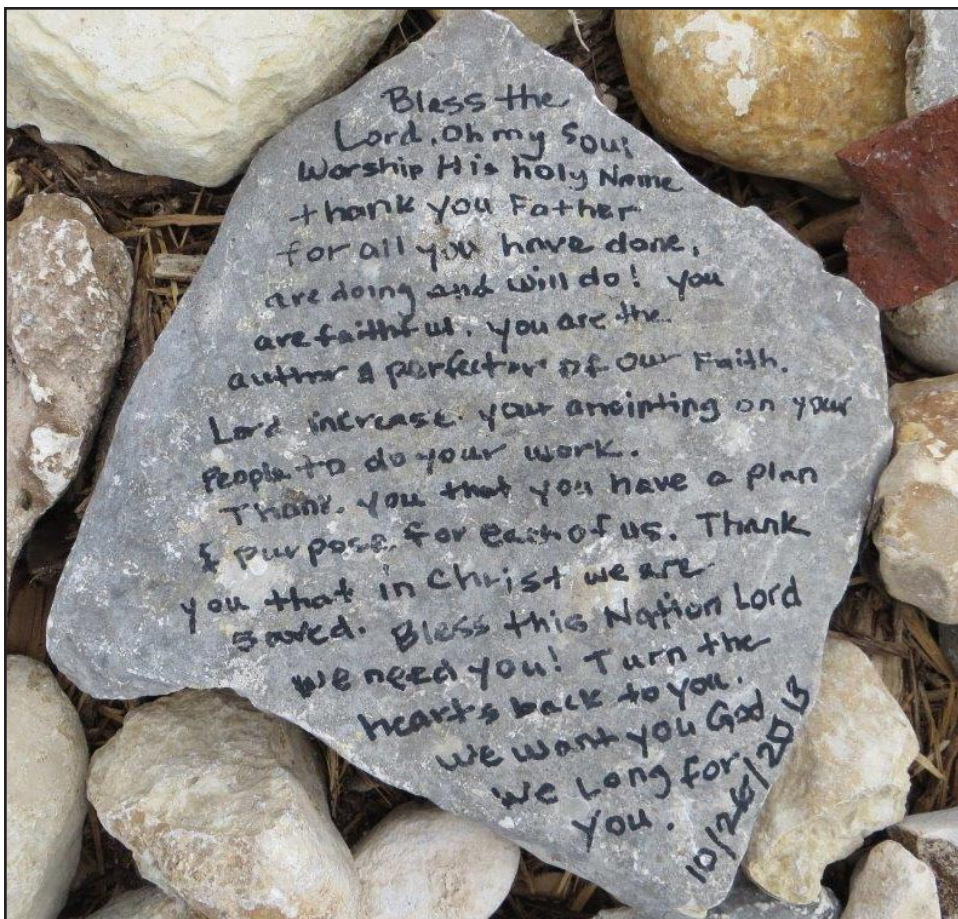 Bless the
Lord, Oh my Soul
Worship His holy Name
thank you Father
for all you have done,
are doing and will do! you
are faithful. you are the
author & perfector of our Faith.
Lord increase your anointing on your
People to do your work.
Thank you that you have a plan
& purpose for each of us. Thank
you that in Christ we are
saved. Bless this Nation Lord
We need you! Turn the
hearts back to you.
We want you God
We Long for
you.
10/26/2013